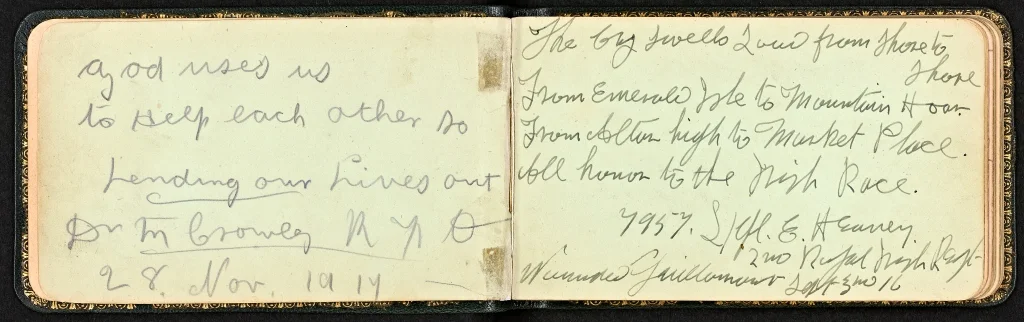 God uses us
to help each other so
Lending our Lives out
Dr M Crowley R
28. Nov. 1914
The cry swells Loud from Shore to
Shore
From Emerald Isle to Mountain Hoar
From Altar high to Market Place.
All honor to the Irish Race.
7957. L/Cpl. E. Heaney.
2nd Royal Irish Regt
Wounded Guillamont Sept 3rd 16